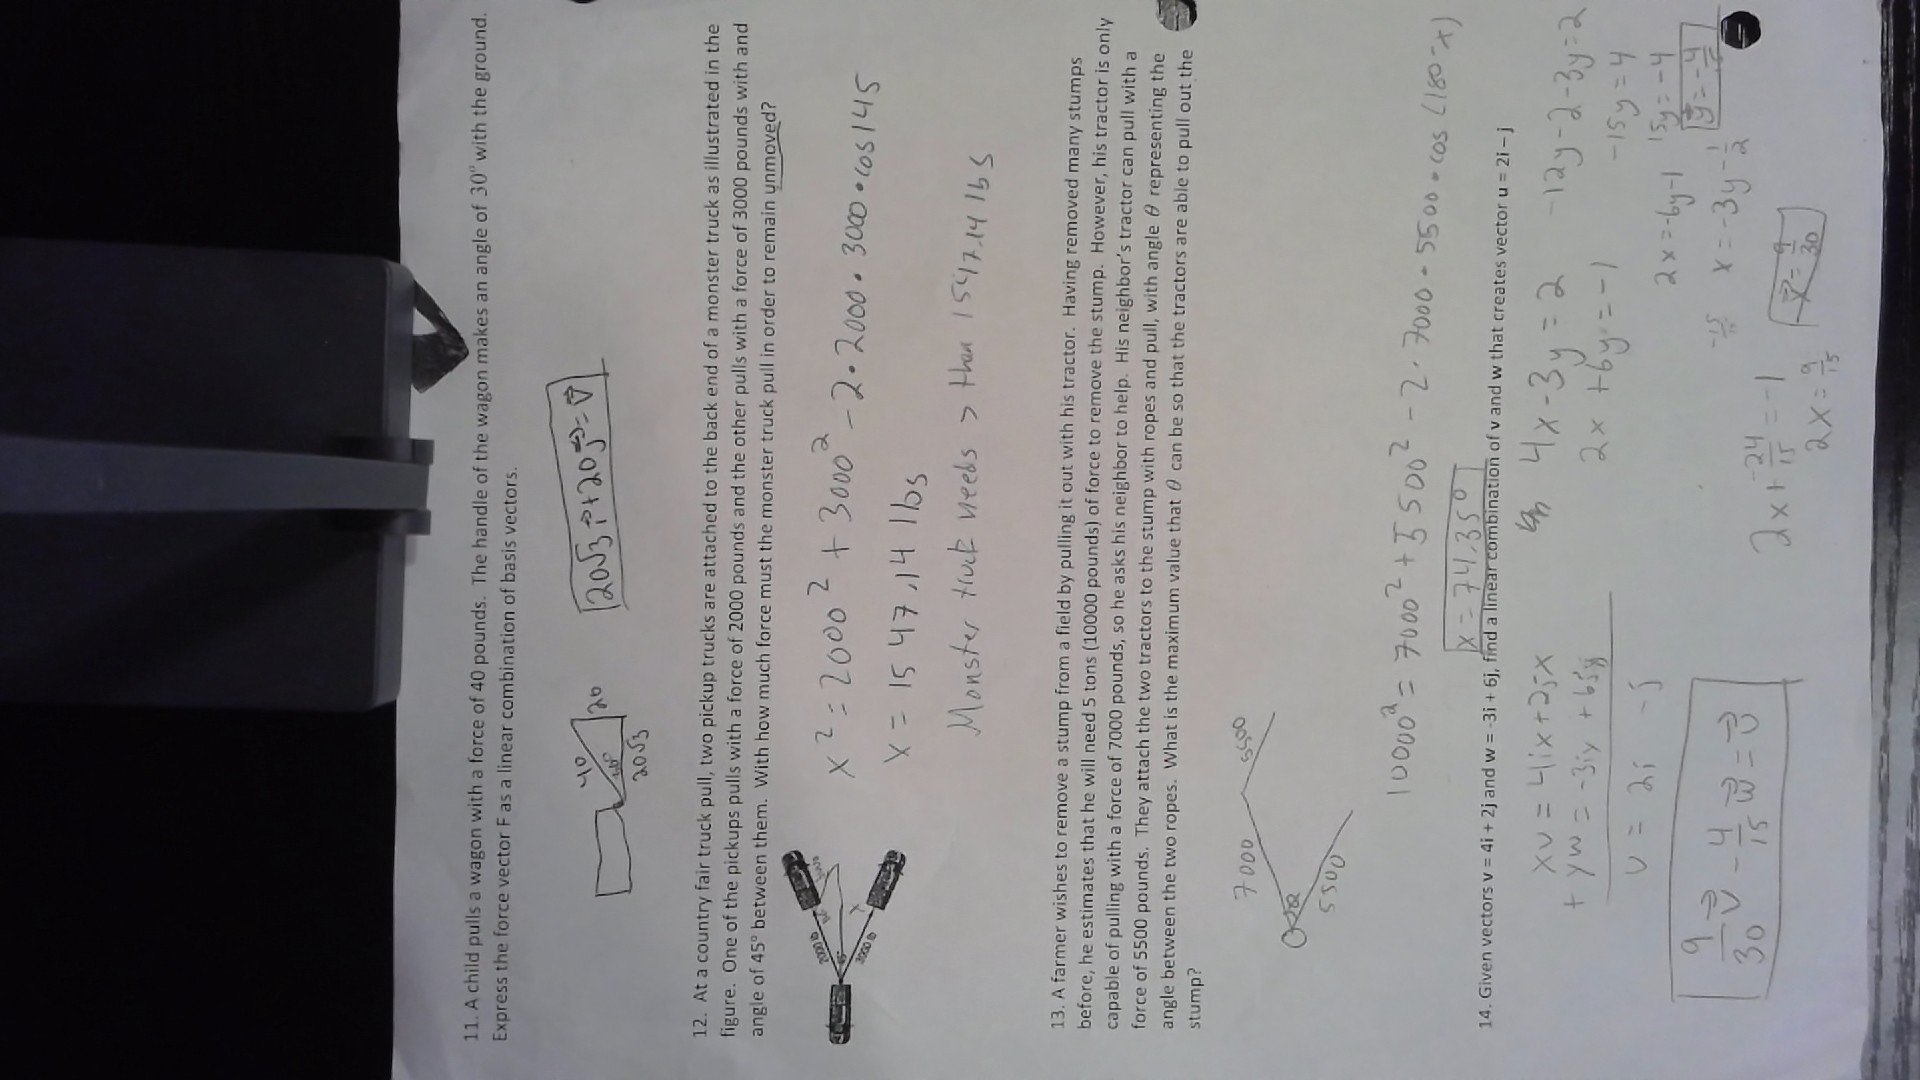 11. A child pulls a wagon with a force of 40 pounds. The handle of the wagon makes an angle of 30° with the ground.
Express the force vector F as a linear combination of basis vectors.
40
20
20√3
20√3 i + 20j = v
12. At a country fair truck pull, two pickup trucks are attached to the back end of a monster truck as illustrated in the
figure. One of the pickups pulls with a force of 2000 pounds and the other pulls with a force of 3000 pounds with and
angle of 45° between them. With how much force must the monster truck pull in order to remain unmoved?
2000 lb
45°
3000 lb
x
x² = 2000² + 3000² - 2 • 2000 • 3000 • cos 145
x = 1547.14 lbs
Monster truck needs > than 1547.14 lbs
13. A farmer wishes to remove a stump from a field by pulling it out with his tractor. Having removed many stumps
before, he estimates that he will need 5 tons (10000 pounds) of force to remove the stump. However, his tractor is only
capable of pulling with a force of 7000 pounds, so he asks his neighbor to help. His neighbor's tractor can pull with a
force of 5500 pounds. They attach the two tractors to the stump with ropes and pull, with angle θ representing the
angle between the two ropes. What is the maximum value that θ can be so that the tractors are able to pull out the
stump?
7000
5500
5500
10000² = 7000² + 5500² - 2 • 7000 • 5500 • cos (180-x)
x = 74.35°
14. Given vectors v = 4i + 2j and w = -3i + 6j, find a linear combination of v and w that creates vector u = 2i – j
xv = 4ix + 2jx
+ yw = -3iy + 6jy
u = 2i - j
4x - 3y = 2
2x + 6y = -1
-12y - 2 - 3y = 2
-15y = 4
15y = -4
y = -4/15
2x = -6y - 1
x = -3y - 1/2
2x + -24/15 = -1
2x = 9/15
x = 9/30
9/30 v - 4/15 w = u